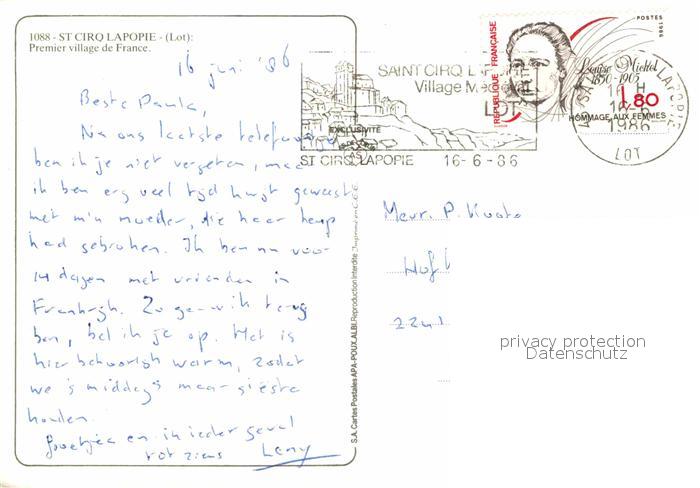 1088 - ST CIRQ LAPOPIE - (Lot):
Premier village de France.
16 juni '86
Beste Paula,
Na ons laatste telefoontje
ben ik je niet vergeten, maar
ik ben erg veel tijd kwijt geweest
met m'n moeder, die haar heup
had gebroken. Ik ben nu voor
14 dagen met vrienden in
Frankrijk. Zo gauw ik terug
ben, bel ik je op. Het is
hier behoorlijk warm, zodat
we 's middags maar siësta
houden.
Groetjes en in ieder geval
tot ziens Leny
S.A. Cartes Postales APA-POUX, ALBI. Reproduction Interdite
EXCLUSIVITÉ
SAINT CIRQ LAPOPIE
Village
LOT
ST CIRQ LAPOPIE 16-6-86
REPUBLIQUE FRANÇAISE
POSTES 1986
Louise Michel
1830-1905
1,80
HOMMAGE AUX FEMMES
16 H
16-6
1986
LOT
Mevr. P.
Hof
privacy protection
Datenschutz